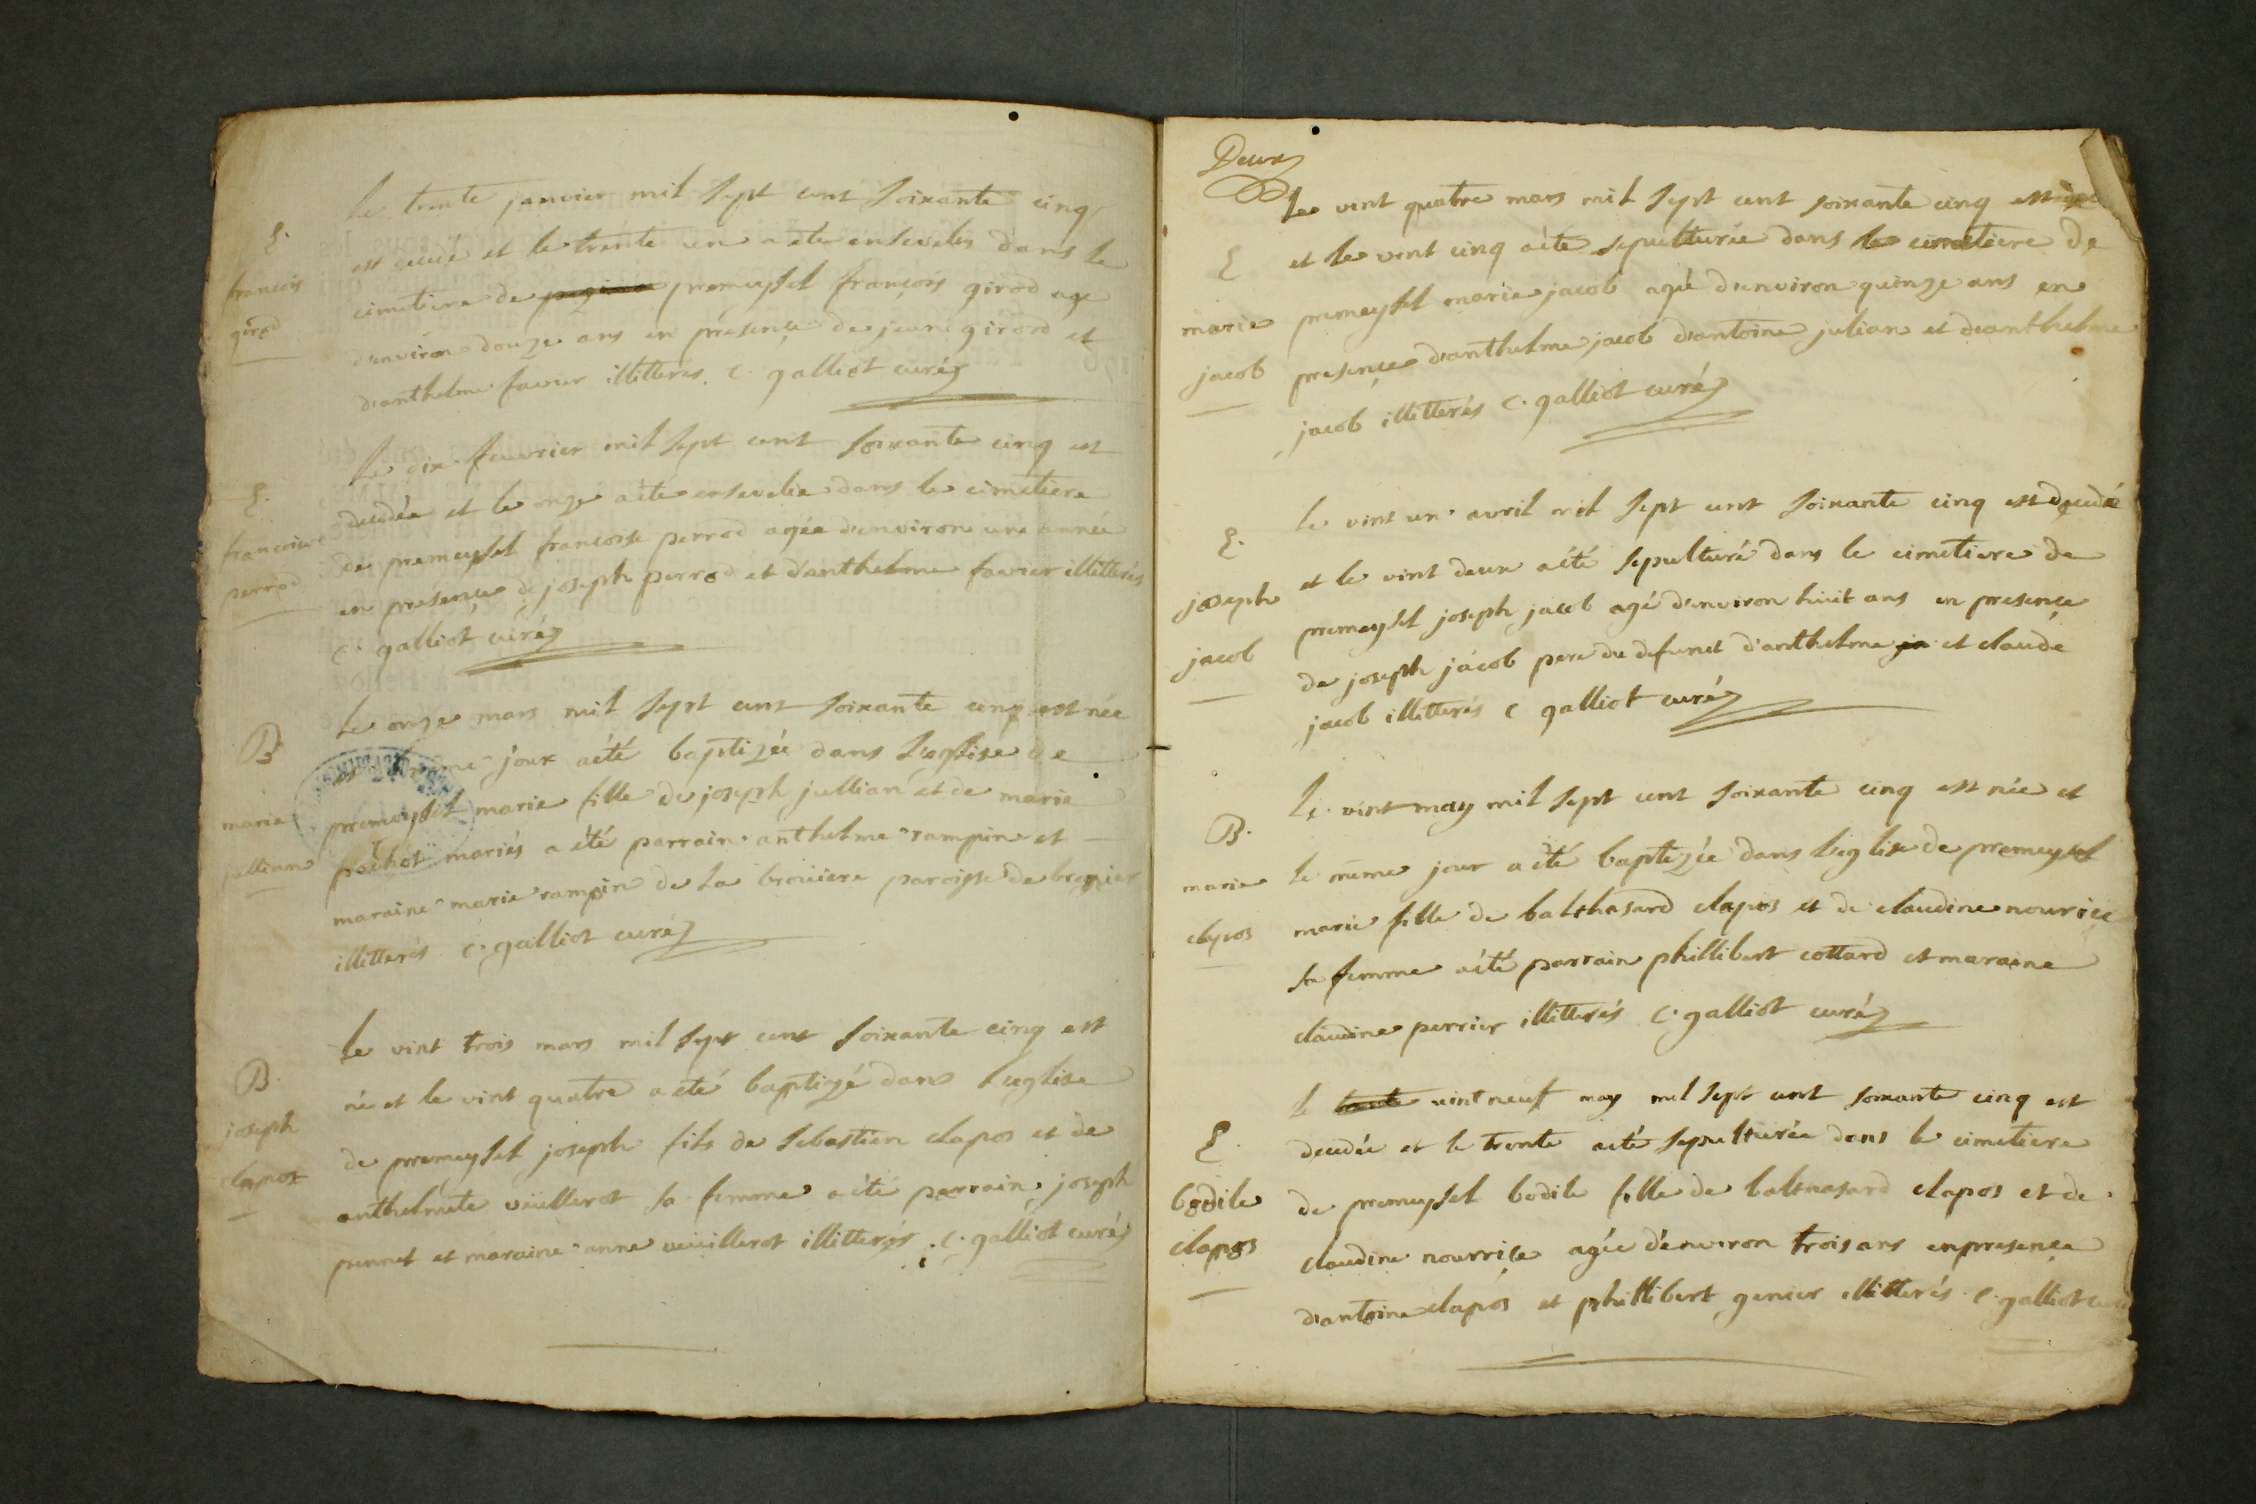 E.
françois
girod
Le trente janvier mil sept cent soixante cinq
est decedé et le trente un a été enseveli dans le
cimetiere de premeysel françois girod age
d'environ douze ans en presençe de jean girord et
d'anthelme favier illitterés. C. galliot curé
E.
francoise
perrod
Le dix feuvrier mil sept cent soixante cinq est
decedée et le onze aété ensevelie dans le cimetiere
de premeysel francoise perrod agée d'environ une année
en presençe de joseph perrod et d'anthelme favier illitterés
C. galliot curé
B
marie
jullian
Le onze mars mil sept cent soixante cinq est née
et le meme jour aété baptizée dans l'eglise de
premeysel marie fille de joseph jullian et de marie
pochot mariés a été parrain anthelme rampin et
maraine marie rampin de la brouiere paroisse de bregnier
illitterés C. galliot curé
B
joseph
clapos
Le vint trois mars mil sept cent soixante cinq est
né et le vint quatre a été baptizé dans l'eglise
de premeysel joseph fils de sebastien clapos et de
anthelmete veüillerot sa femme aété parrain joseph
pennet et maraine anne veüillerot illitterés C. galliot curé
Deux
E
marie
jacob
Le vint quatre mars mil sept cent soixante cinq est
et le vint cinq aété sepulturée dans le cimetiere de
premeysel marie jacob agée d'environ quinze ans en
presençe d'anthelme jacob d'antoine julian et d'anthelme
jacob illitterés C. galliot curé
E.
joseph
jacob
Le vint un avril mil sept cent soixante cinq est decedé
et le vint deux aété sepulturé dans le cimetiere de
premeysel joseph jacob agé d'environ huit ans en presençe
de joseph jacob pere du defunct d'anthelme ja et claude
jacob illitterés C galliot curé
B.
marie
clapos
Le vint may mil sept cent soixante cinq est née et
le même jour a été baptizée dans l'eglise de premeysel
marie fille de balthasard clapos et de claudine nourice
sa femme aété parrain phillibert cottard et maraine
claudine perrier illitterés C. galliot curé
E.
bodile
clapos
le trente vint neuf may mil sept cent soixante cinq est
decedée et le trente aété sepulturée dans le cimetiere
de premeysel bodile fille de balthasard clapos et de
claudine nourrice agée d'environ trois ans en presençe
d'antoine clapos et phillibert genier illitterés C. galliot curé